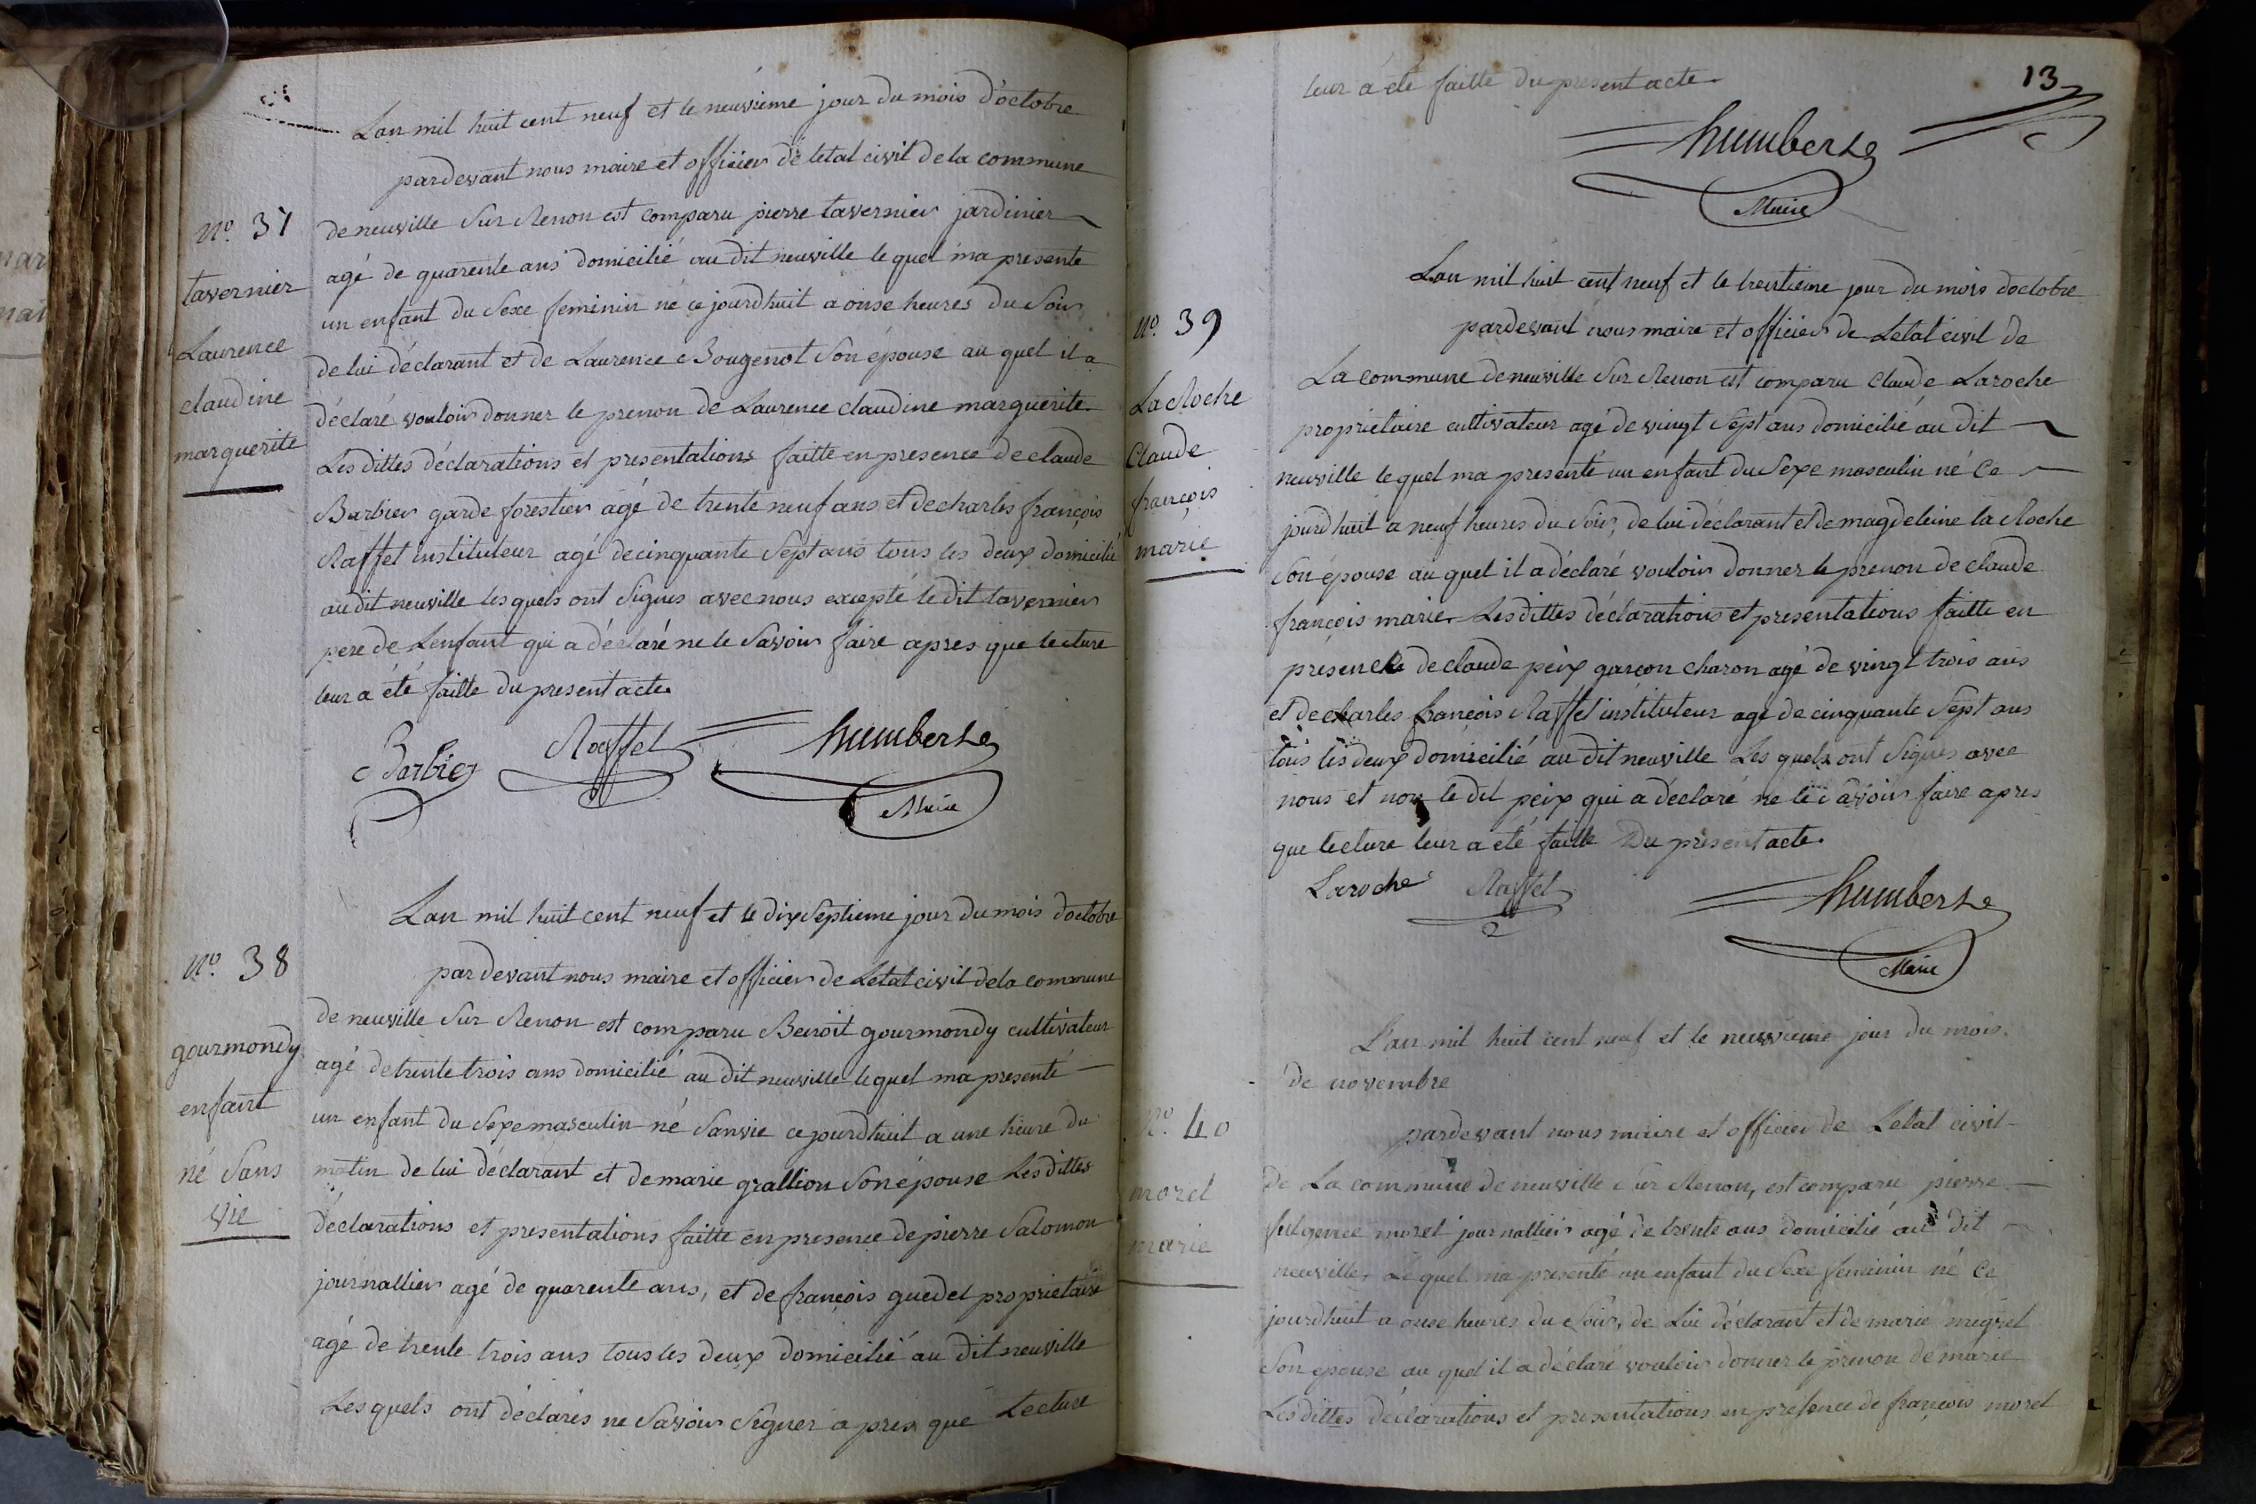 Lan mil huit cent neuf et le neuvieme jour du mois d'octobre
pardevant nous maire et officier de letat civil de la commune
No. 37
de neuville Sur Renon est comparu pierre tavernier jardinier
tavernier
agé de quarente ans domicilié au dit neuville le quel m'a presente
un enfant du Sexe feminin né ce jourdhuit a onse heures du Soir,
Laurence
de lui déclarant et de Laurence Bougenot Son épouse au quel il a
claudine
déclaré vouloir donner le prenon de Laurence claudine marguerite.
marguerite
Les dittes déclarations et presentations faitte en presence de claude
Barbier garde forestier agé de trente neuf ans et de charles françois
Raffet instituteur agé de cinquante Sept ans tous les deux domicilié
au dit neuville les quels ont Signes avec nous excepté le dit tavernier
pere de Lenfant qui a déclaré ne le Savoir faire apres que lecture
leur a été faitte du present acte.
Barbier Raffet humbert
Maire
Lan mil huit cent neuf et le dix Septieme jour du mois doctobre
No. 38
par devant nous maire et officier de Letat civil de la commune
de neuville Sur Renon est comparu Benoit gourmondy cultivateur
gourmondy
agé de trente trois ans domicilié au dit neuville le quel ma presenté
enfant
un enfant du Sexe masculin né Sanvie ce jourdhuit a une heure du
né Sans
matin de lui déclarant et de marie grallion Son épouse Les dittes
vie
déclarations et presentations faitte en presence de pierre Salomon
journallier agé de quarente ans, et de françois guedet proprietaire
agé de trente trois ans tous les deux domicilié au dit neuville
Les quels ont déclarés ne Savoir Signer apres que Lecture
13
leur a été faitte du present acte.
humbert
Maire
Lan mil huit cent neuf et le trentieme jour du mois doctobre
No. 39
pardevant nous maire et officier de Letat civil de
La commune de neuville Sur Renon est comparu Claude Laroche
La Roche
proprietaire cultivateur agé de vingt Sept ans domicilié au dit
Claude
neuville le quel ma presenté un enfant du Sexe masculin né Ce
françois
jourdhuit a neuf heures du Soir, de lui déclarant et de magdeleine la Roche
marie
Son épouse au quel il a déclaré vouloir donner le prenon de claude
françois marie. Les dittes déclarations et presentations faitte en
presence de claude peix garçon charon agé de vingt trois ans
et de charles françois Raffet instituteur agé de cinquante Sept ans
tous les deux domicilié au dit neuville Les quels ont Signes avec
nous et non le dit peix qui a déclaré ne le Savoir faire apres
que lecture leur a été faitte Du present acte.
Laroche Raffet humbert
Maire
L'an mil huit cent neuf et le neuvieme jour du mois
de novembre
No. 40
pardevant nous maire et officier de Letat civil
morel
de La commune de neuville Sur Renon, est comparu pierre
marie
fulgence morel journallier agé de trente ans domicilié au dit
neuville, Le quel m'a presenté un enfant du Sexe feminin né Ce
jourdhuit a onse heures du Soir, de Lui déclarant et de marie megret
Son épouse au quel il a déclaré vouloir donner le prenon de marie
Les dittes déclarations et presentations en presence de françois morel